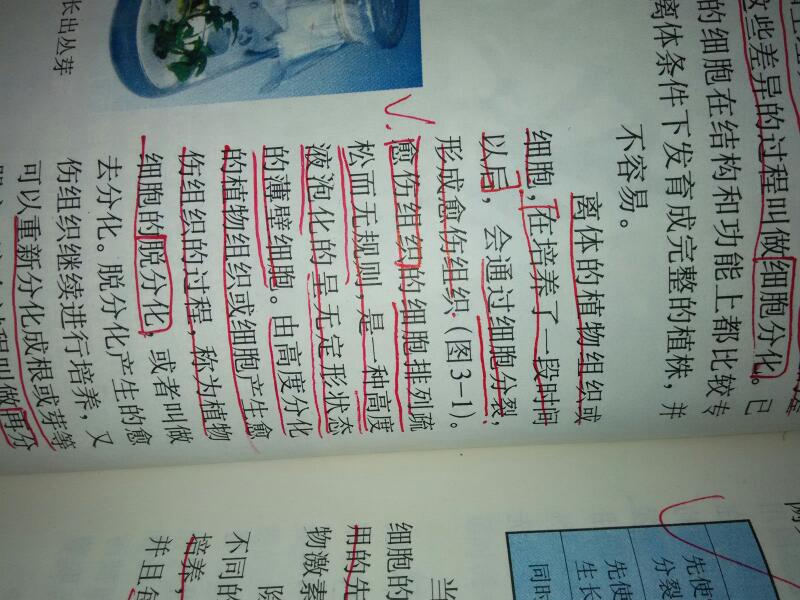 长出丛芽
些差异的过程叫做细胞分化。已
的细胞在结构和功能上都比较专
离体条件下发育成完整的植株，并
不容易。
离体的植物组织或
细胞，在培养了一段时间
以后，会通过细胞分裂，
形成愈伤组织（图3-1）。
愈伤组织的细胞排列疏
松而无规则，是一种高度
液泡化的呈无定形状态
的薄壁细胞。由高度分化
的植物组织或细胞产生愈
伤组织的过程，称为植物
细胞的脱分化，或者叫做
去分化。脱分化产生的愈
伤组织继续进行培养，又
可以重新分化成根或芽等
过程叫做再分
当
细胞的
用的先
物激素
不同的
培养，
并且每
先使
分裂
先使
生长
同时